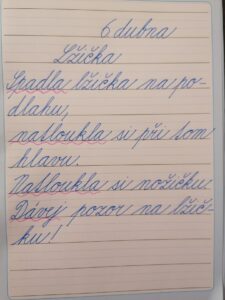 6 dubna
Lžička
Spadla lžička na po-
dlahu,
natloukla si při tom
hlavu.
Natloukla si nožičku.
Dávej pozor na lžič-
ku!